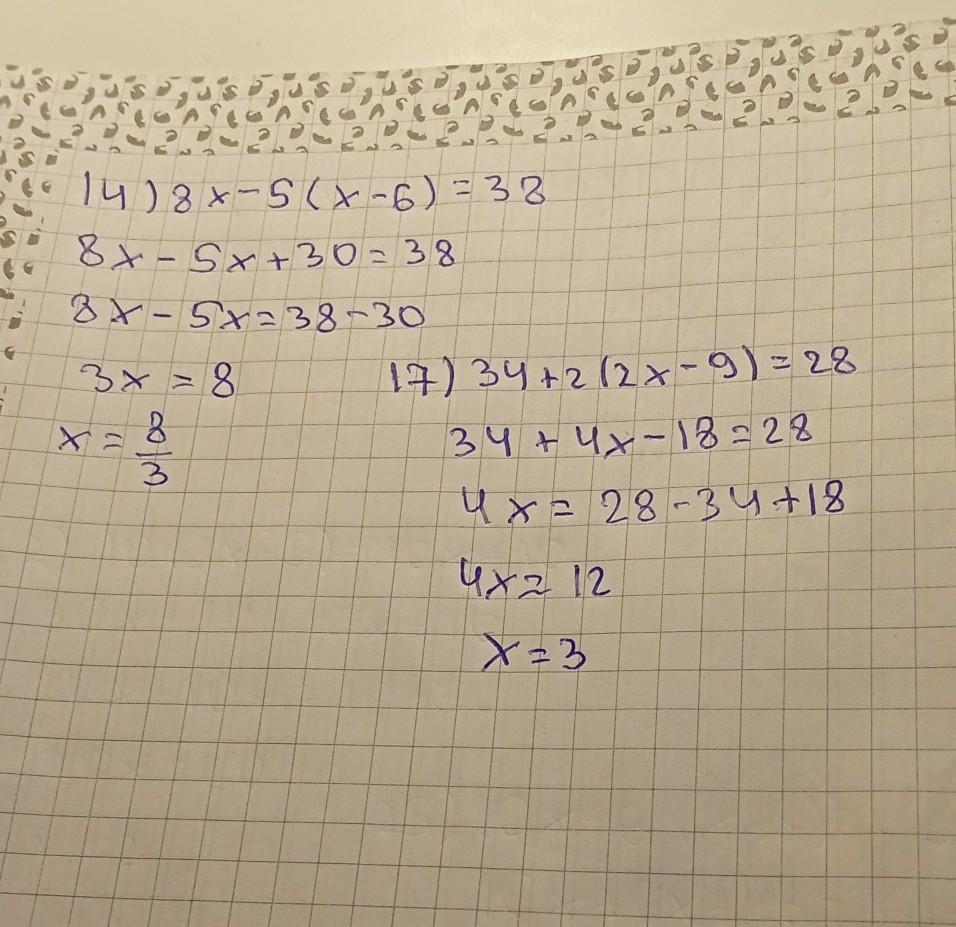 14) 8x-5(x-6)=38
8x-5x+30=38
8x-5x=38-30
3x=8
x=8/3
17) 34+2(2x-9)=28
34+4x-18=28
4x=28-34+18
4x=12
x=3